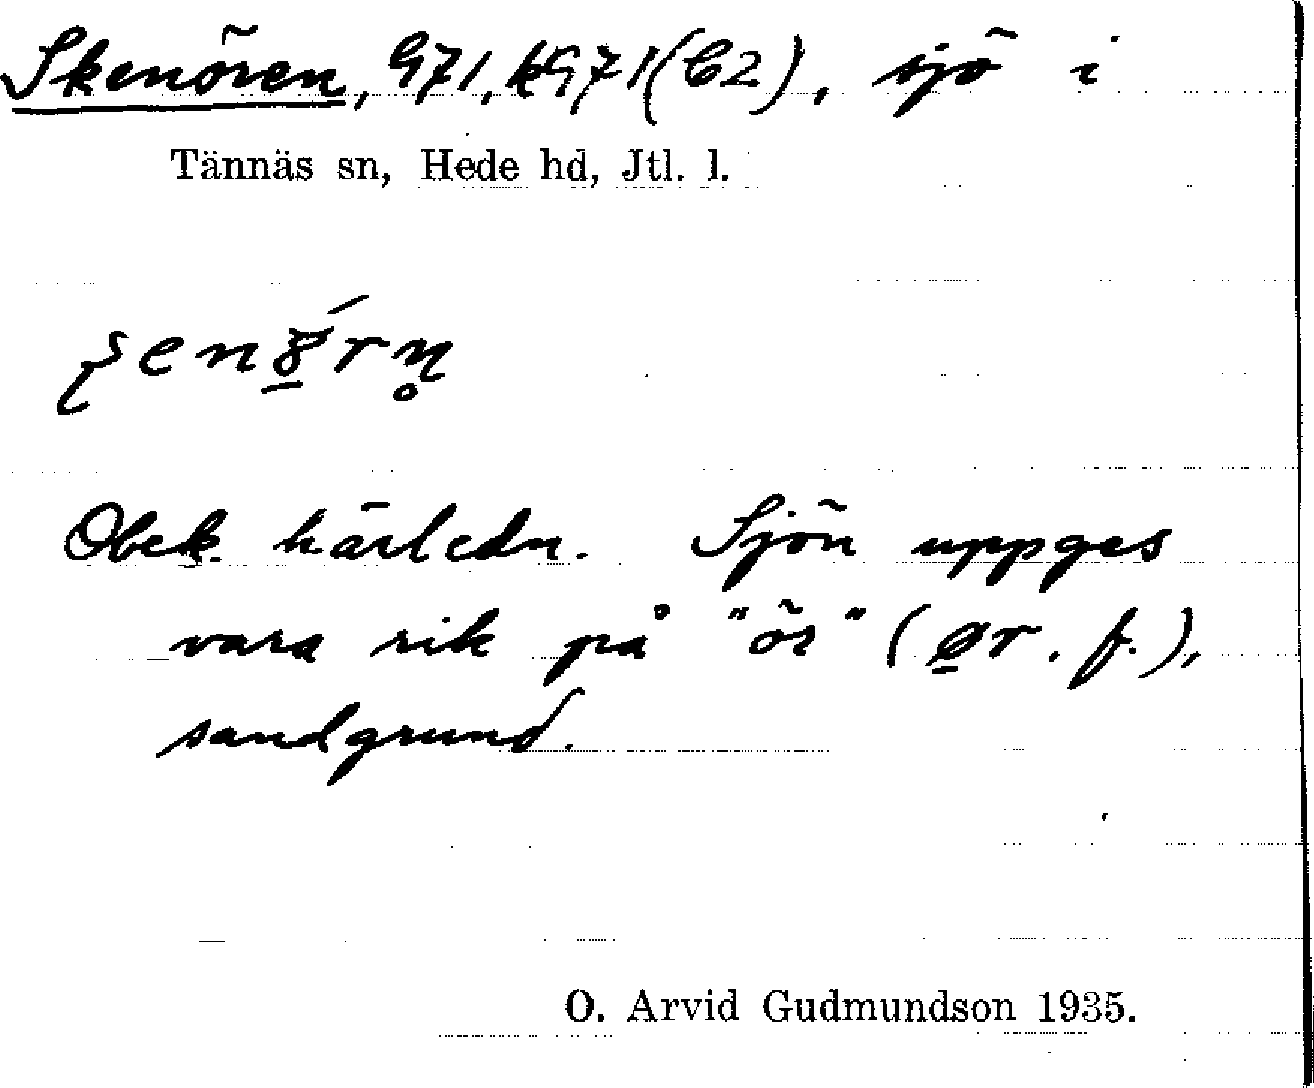 Skenören, G71, kG71(C2), sjö i
Tännäs sn, Hede hd, Jtl. l.
Obek. härledn. Sjön uppges
vara rik på "ör" (ør. f.),
sandgrund.
O. Arvid Gudmundson 1935.